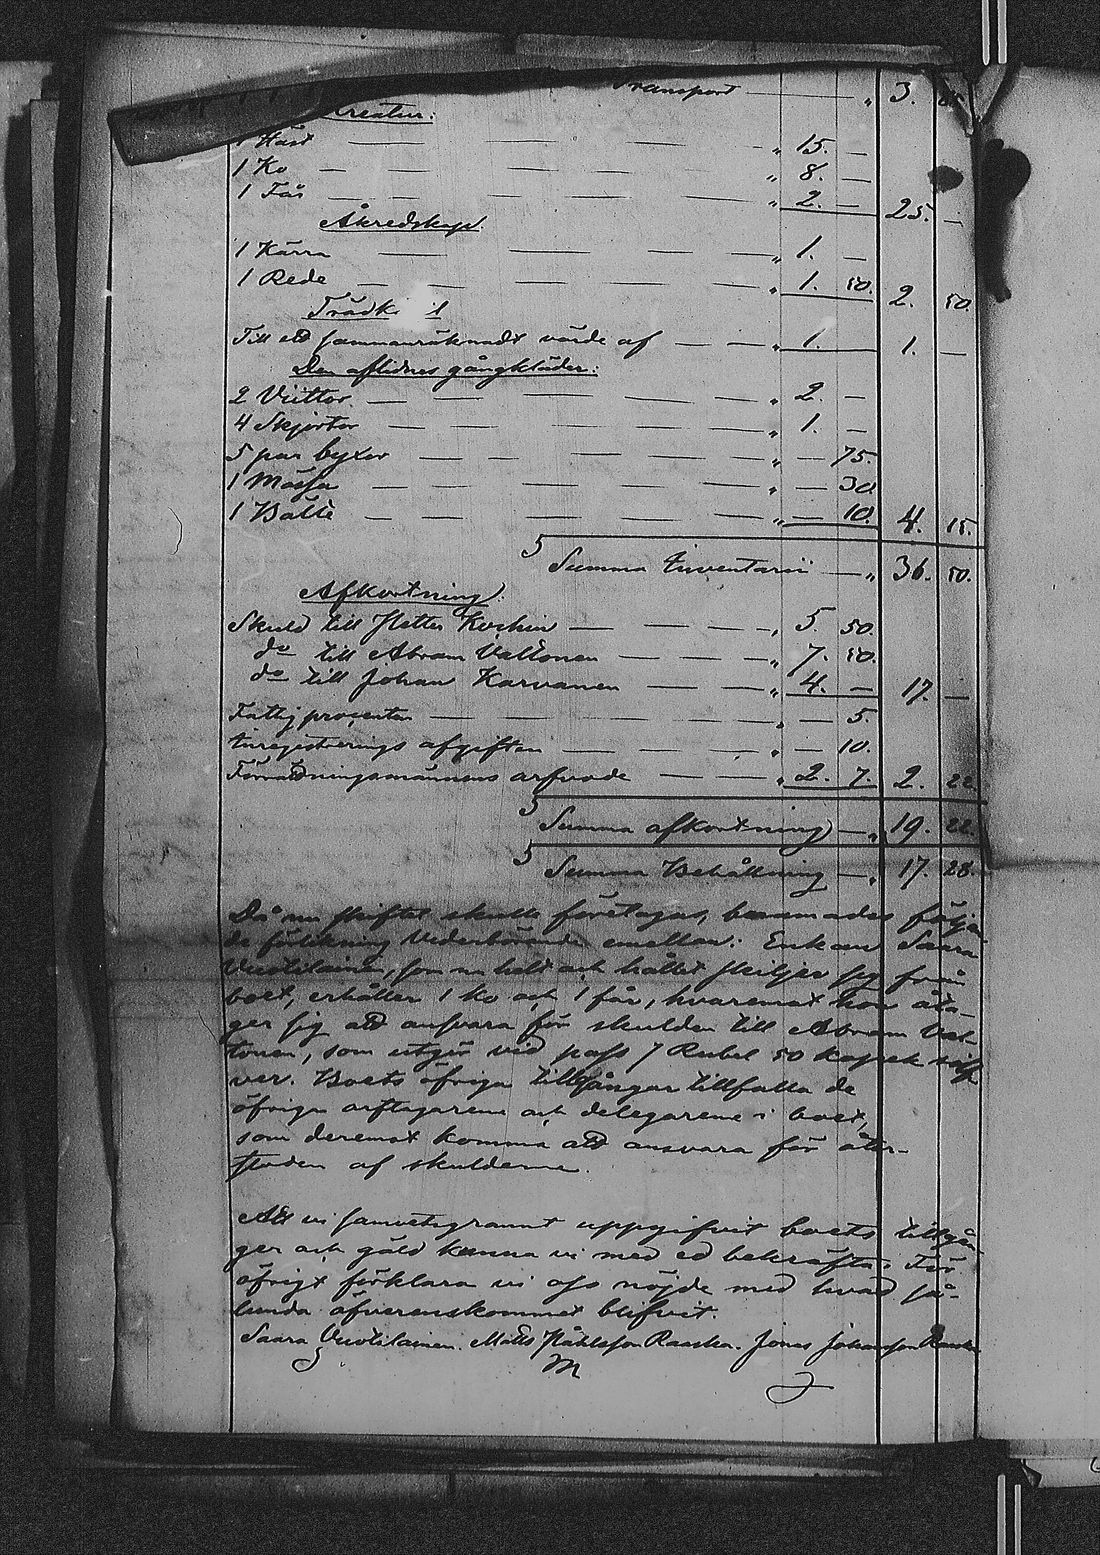 Transport — „ 3. 85.
Kreatur:
1 Häst — „ 15. —
1 Ko — „ 8. —
1 Får — „ 2. — 25. —
Åkredskap.
1 Kärra — „ 1. —
1 Rede — „ 1. 50. 2. 50.
Trädk l
Till ett sammanräknadt värde af — „ 1. — 1. —
Den aflidnes gångkläder:
2 Vuittor — „ 2. —
4 Skjortor — „ 1. —
5 par byxor — „ — 75.
1 Mössa — „ — 30.
1 Bälte — „ — 10. 4. 15.
Summa Inventarii — „ 36. 50.
Afkortning.
Skuld till Petter — „ 5. 50.
do till Abram Valtonen — „ 7. 50.
do till Johan Karvanen — „ 4. — 17. —
Fattigprocenten — „ — 5.
Inregistrerings afgiften — „ — 10.
Förrättningsmännens arfvode — „ 2. 7. 2. 22.
Summa afkortning — „ 19. 22.
Summa Behållning — „ 17. 28.
Då nu skiftet skulle företagas, beramades följan
de förlikning Vederbörande emellan: Enkan Saara
Vuotilainen, som nu helt och hållet skiljer sig från
boet, erhåller 1 ko och 1 får, hvaremot hon åta-
ger sig att ansvara för skulden till Abram Val-
tonen, som utgör vid pass 7 Rubel 50 kopek silf
ver. Boets öfriga tillgångar tillfalla de
öfriga arftagarene och delegarene i boet,
som deremot komma att ansvara för åter-
stoden af skulderne.
Att vi samvetsgrannt uppgifvit boets tillgån
ger och gäld kunna vi med ed bekräfta. För
öfrigt förklara vi oss nöjde med hvad så-
lunda öfverenskommet blifvit.
Saara Vuotilainen. Matts Påhlsson Raaska. Jonas Johansson Raaska
M